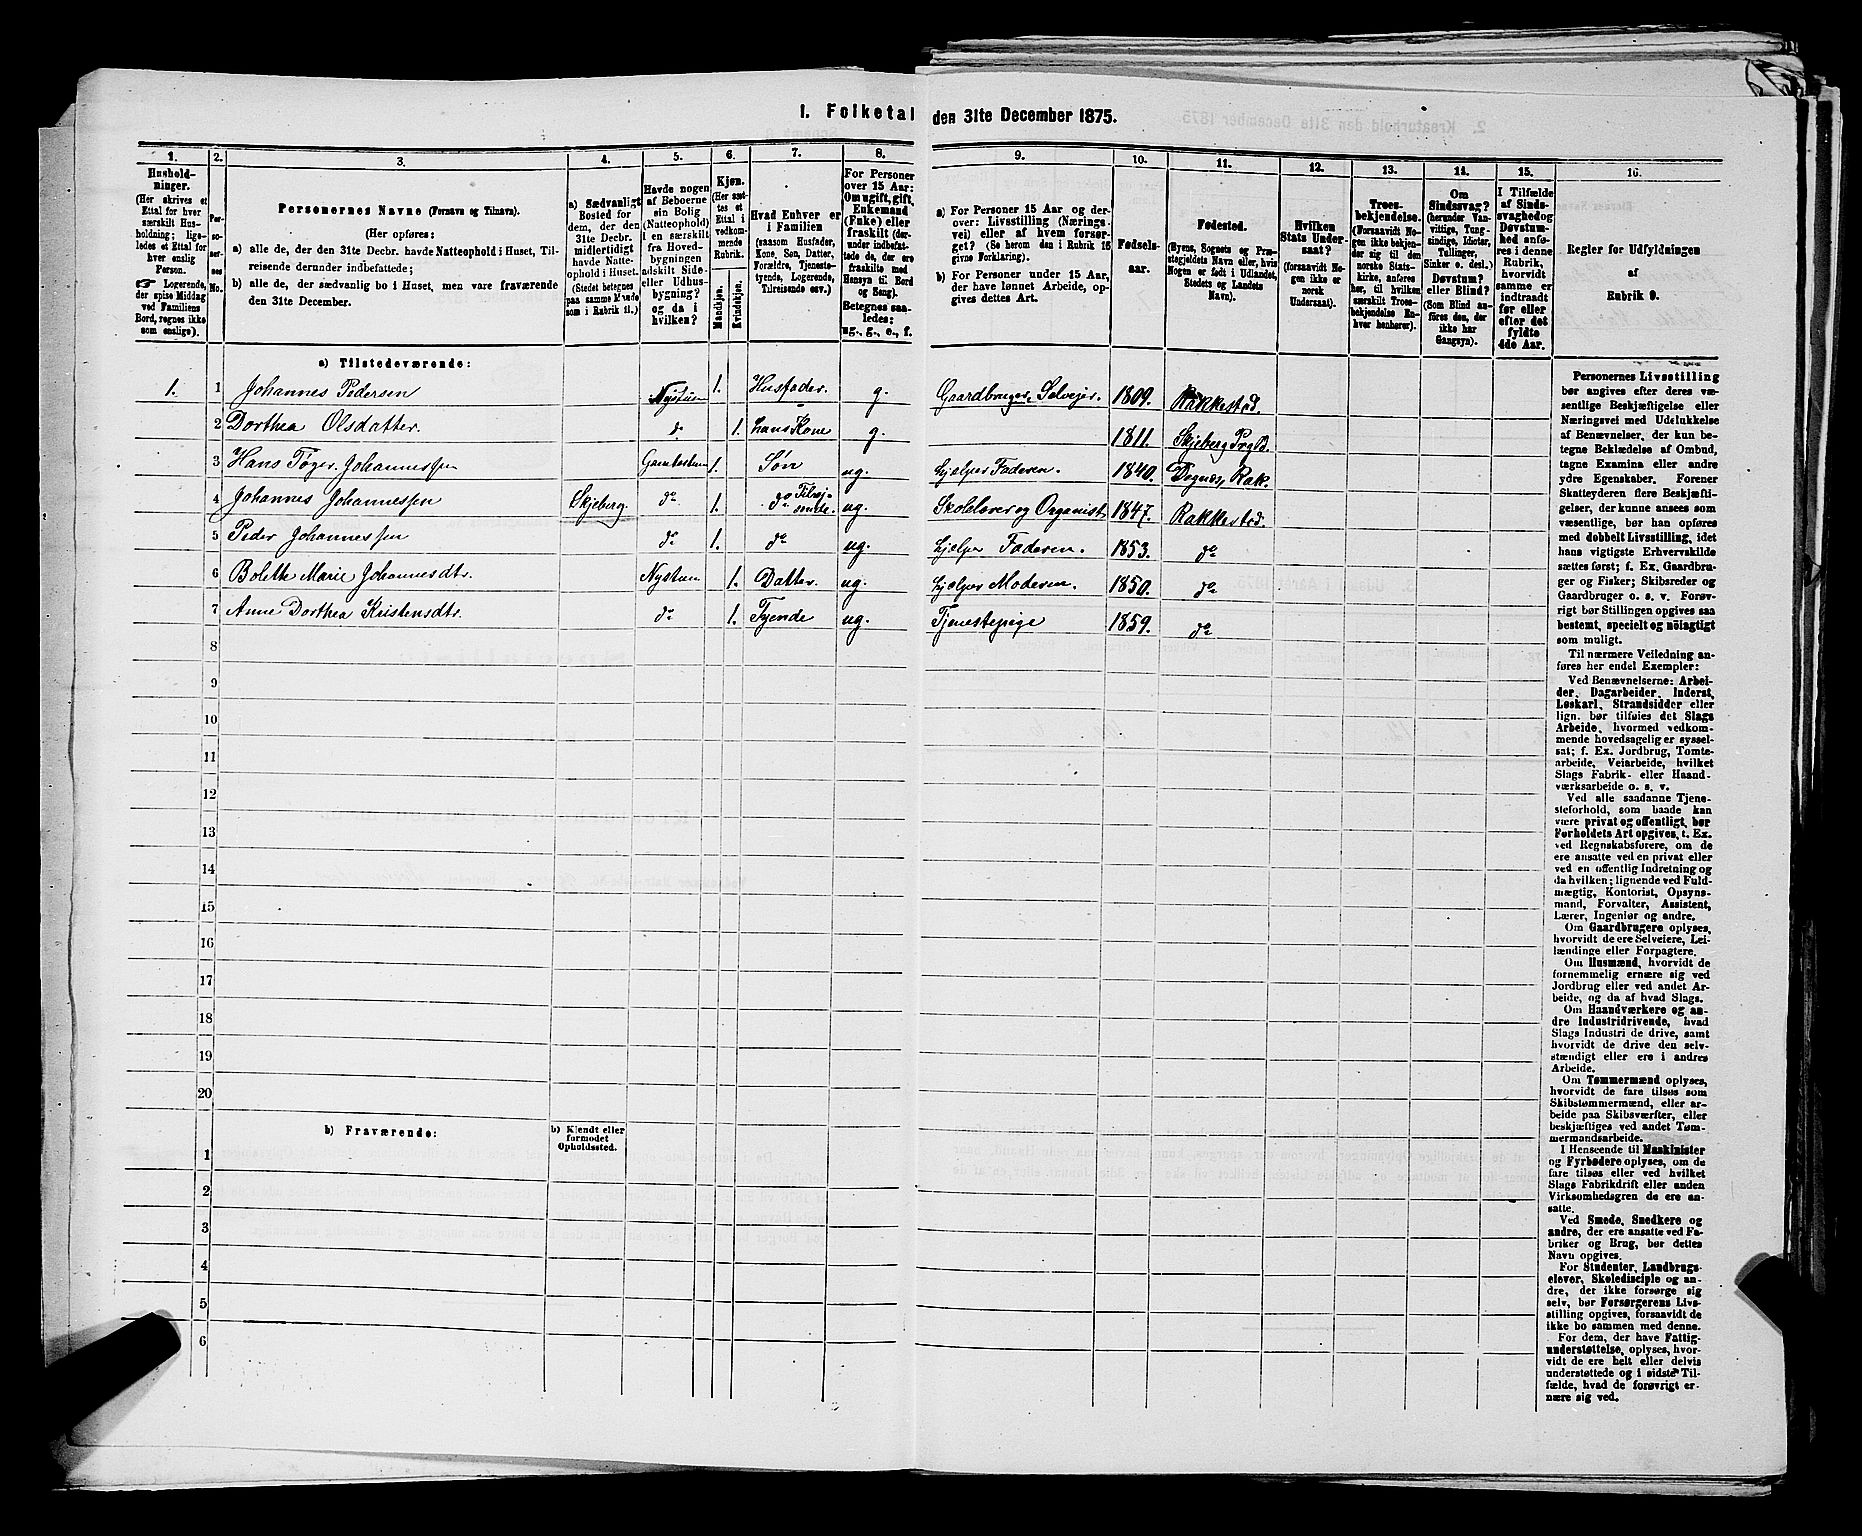 1. Folketal den 31te December 1875.
1. 2. 3. 4. 5. 6. 7. 8. 9. 10. 11. 12. 13. 14. 15. 16.
Husholdninger.
(Her skrives et
Ettal for hver
særskilt Hus-
holdning; lige-
ledes et Ettal for
hver enslig
Person.
☞ Logerende,
der spise Middag
ved Familiens
Bord, regnes ikke
som enslige).
Per-
so-
ner-
nes
No.
Personernes Navne (Fornavn og Tilnavn).
(Her opføres:
a) alle de, der den 31te Decbr. havde Natteophold i Huset, Til-
reisende derunder indbefattede;
b) alle de, der sædvanlig bo i Huset, men vare fraværende
den 31te December.
a) Sædvanligt
Bosted for
dem, der den
31te Decbr.
midlertidigt
havde Natte-
ophold i Huset.
(Stedet betegnes
paa samme Maade
som i Rubrik 11.)
Havde nogen
af Beboerne
sin Bolig
(Natteophold)
i en særskilt
fra Hoved-
bygningen
adskilt Side-
eller Udhus-
bygning?
og da i
hvilken?
Kjøn.
(Her sæt-
tes et
Ettal i
vedkom-
mende
Rubrik.
Mandkjøn.
Kvindekjøn.
Hvad Enhver er
i Familien
(saasom Husfader,
Kone, Søn, Datter,
Forældre, Tjeneste-
tyende, Logerende,
Tilreisende osv.)
For Personer
over 15 Aar:
Om ugift, gift,
Enkemand
(Enke) eller
fraskilt (der-
under indbefat-
tede de, der ere
fraskilte med
Hensyn til Bord
og Seng).
Betegnes saa-
ledes:
ug., g., e., f.
a) For Personer 15 Aar og der-
over: Livsstilling (Nærings-
vei) eller af hvem forsør-
get? (Se herom den i Rubrik 16
givne Forklaring).
b) For Personer under 15 Aar,
der have lønnet Arbeide, op-
gives dettes Art.
Fødsels-
aar.
Fødested.
(Byens, Sognets og Præ-
stegjeldets Navn eller, hvis
Nogen er født i Udlandet,
Stedets og Landets
Navn).
Hvilken
Stats Under-
saat?
(forsaavidt No-
gen ikke er
norsk
Undersaat).
Troes-
bekjendelse.
(Forsaavidt No-
gen ikke bekjen-
der sig til den
norske Stats-
kirke, anføres
her, til hvilken
særskilt Troes-
bekjendelse En-
hver henhører).
Om
Sindssvag?
(herunder Van-
vittige, Tung-
sindige, Idioter,
Tullinger,
Sinker o. desl.)
Døvstum?
eller Blind?
(Som Blind an-
føres den, der
ikke har
Gangsyn).
I Tilfælde
af Sinds-
svaghed og
Døvstum-
hed anfø-
res i denne
Rubrik,
hvorvidt
samme er
indtraadt
før eller
efter det
fyldte
4de Aar.
Regler for Udfyldningen
af
Rubrik 9.
a) Tilstedeværende:
1. 1 Johannes Pedersen Nystuen 1. Husfader. g. Gaardbruger, Selveier. 1809. Rakkestad.
2 Dorthea Olsdatter. do 1. hans Kone g. 1811. Skjeberg Prgld.
3 Hans Tøger Johannessen 1. Søn ug. hjelper Faderen. 1840. Degnes, Rak.
4 Johannes Johannessen Skjeberg. do 1. do Tilrejsende. ug. Skolelærer og Organist 1847. Rakkestad.
5 Peder Johannessen do 1. do ug. hjelper Faderen. 1853. do
6 Bolette Marie Johannesdtr. Nystuen 1. Datter. ug. hjelper Moderen. 1850. do
7 Anne Dorthea Kristensdtr. do 1. Tyende ug. Tjenestepige 1859. do
8
9
10
11
12
13
14
15
16
17
18
19
20
b) Fraværende:
b) Kjendt eller
formodet
Opholdssted.
1
2
3
4
5
6
Personernes Livsstilling
bør angives efter deres væ-
sentlige Beskjæftigelse eller
Næringsvei med Udelukkelse
af Benævnelser, der kun be-
tegne Beklædelse af Ombud,
tagne Examina eller andre
ydre Egenskaber. Forener
Skatteyderen flere Beskjæfti-
gelser, der kunne ansees som
væsentlige, bør han opføres
med dobbelt Livsstilling, idet
hans vigtigste Erhvervskilde
sættes først; f. Ex. Gaardbru-
ger og Fisker; Skibsreder og
Gaardbruger o. s. v. Forøv-
rigt bør Stillingen opgives saa
bestemt, specielt og nøiagtigt
som muligt.
Til nærmere Veiledning an-
føres her endel Exempler:
Ved Benævnelserne: Arbei-
der, Dagarbeider, Inderst,
Løskarl, Strandsidder eller
lign. bør tilføies det Slags
Arbeide, hvormed vedkom-
mende hovedsagelig er syssel-
sat; f. Ex. Jordbrug, Tomte-
arbeide, Veiarbeide, hvilket
Slags Fabrik- eller Haand-
værksarbeide o. s. v.
Ved alle saadanne Tjene-
steforhold, som baade kan
være privat og offentligt, bør
Forholdets Art opgives, t. Ex.
ved Regnskabsførere, om de
ere ansatte ved en privat eller
ved en offentlig Indretning og
da hvilken; lignende ved Fuld-
mægtig, Kontorist, Opsyns-
mand, Forvalter, Assistent,
Lærer, Ingeniør og andre.
Om Gaardbrugere oplyses,
hvorvidt de ere Selveiere, Lei-
lændinge eller Forpagtere.
Om Husmænd, hvorvidt de
fornemmelig ernære sig ved
Jordbrug eller ved andet Ar-
beide, og da af hvad Slags.
Om Haandværkere og an-
dre Industridrivende, hvad
Slags Industri de drive, samt
hvorvidt de drive den selv-
stændigt eller ere i andres
Arbeide.
Om Tømmermænd oplyses,
hvorvidt de fare tilsøs som
Skibstømmermænd, eller ar-
beide paa Skibsværfter, eller
beskjæftiges ved andet Tøm-
mermandsarbeide.
I Henseende til Maskinister
og Fyrbødere oplyses, om de
fare tilsøs eller ved hvilket
Slags Fabrikdrift eller anden
Virksomhedsgren de ere an-
satte.
Ved Smede, Snedkere og
andre, der ere ansatte ved Fa-
briker og Brug, bør dettes
Navn opgives.
For Studenter, Landbrugs-
elever, Skoledisciple og an-
dre, der ikke forsørge sig
selv, bør Forsørgerens Livs-
stilling opgives, forsaavidt de
ikke bo sammen med denne.
For dem, der have Fattig-
understøttelse, oplyses, hvor-
vidt de ere helt eller delvis
understøttede og i sidste Til-
fælde, hvad de forøvrigt er-
nære sig ved.